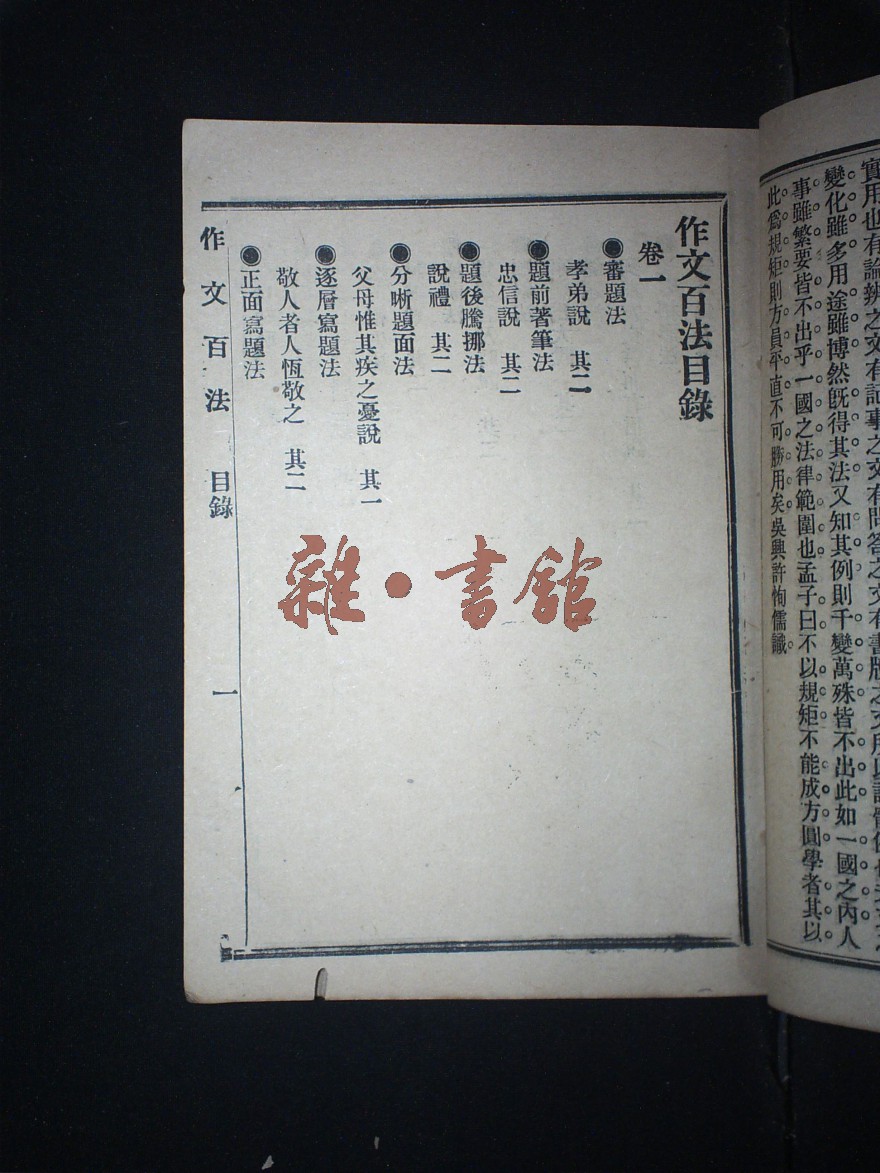 實用也有論辨之文有記事之文有問答之文有書牘之文所以
變化雖多用途雖博然既得其法又知其例則千變萬殊皆不出此如一國之內人
事雖繁要皆不出乎一國之法律範圍也孟子曰不以規矩不能成方圓學者其以
此爲規矩則方員平直不可勝用矣吳興許恂儒識
作文百法目錄
卷一
●審題法
孝弟說 其二
●題前著筆法
忠信說 其二
●題後騰挪法
說禮 其二
●分晰題面法
父母惟其疾之憂說 其一
●逐層寫題法
敬人者人恆敬之 其二
●正面寫題法
作文百法 目錄 一
雜·書館